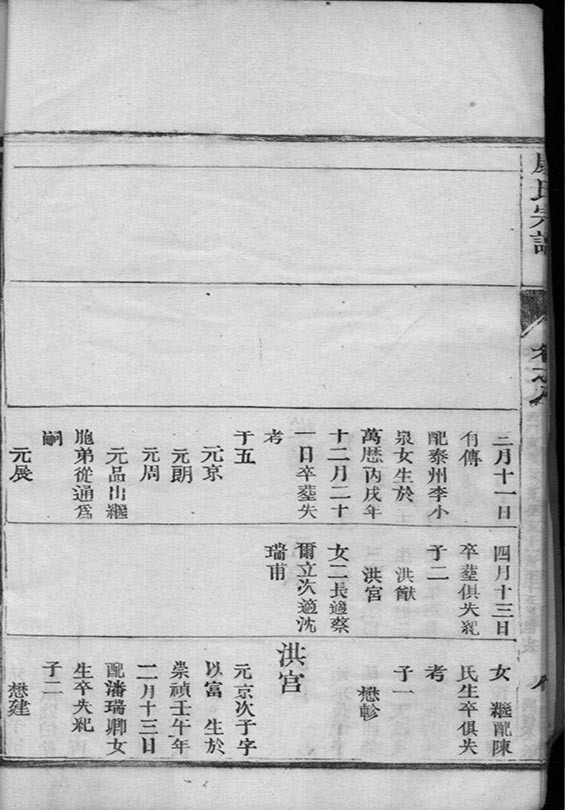 氏宗譜
卷之八
三月十一日
有傳
配泰州李小
泉女生於
萬歷丙戌年
十二月二十
一日卒葬失
考
子五
元京
元朗
元周
元品出繼
胞弟從通爲
嗣
元展
四月十三日
卒葬俱失紀
子二
洪猷
洪宮
女二長適蔡
爾立次適沈
瑞甫
女 繼配陳
氏生卒俱失
考
子一
懋軫
洪宮
元京次子字
以富 生於
崇禎壬午年
二月十三日
配潘瑞卿女
生卒失紀
子二
懋建